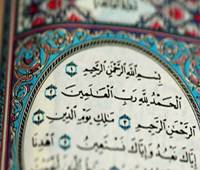 بِسْمِ ٱللَّهِ ٱلرَّحْمَٰنِ ٱلرَّحِيمِ ١
ٱلْحَمْدُ لِلَّهِ رَبِّ ٱلْعَٰلَمِينَ ٢
ٱلرَّحْمَٰنِ ٱلرَّحِيمِ ٣ مَٰلِكِ يَوْمِ ٱلدِّينِ ٤
إِيَّاكَ نَعْبُدُ وَإِيَّاكَ نَسْتَعِينُ ٥ ٱهْدِنَا